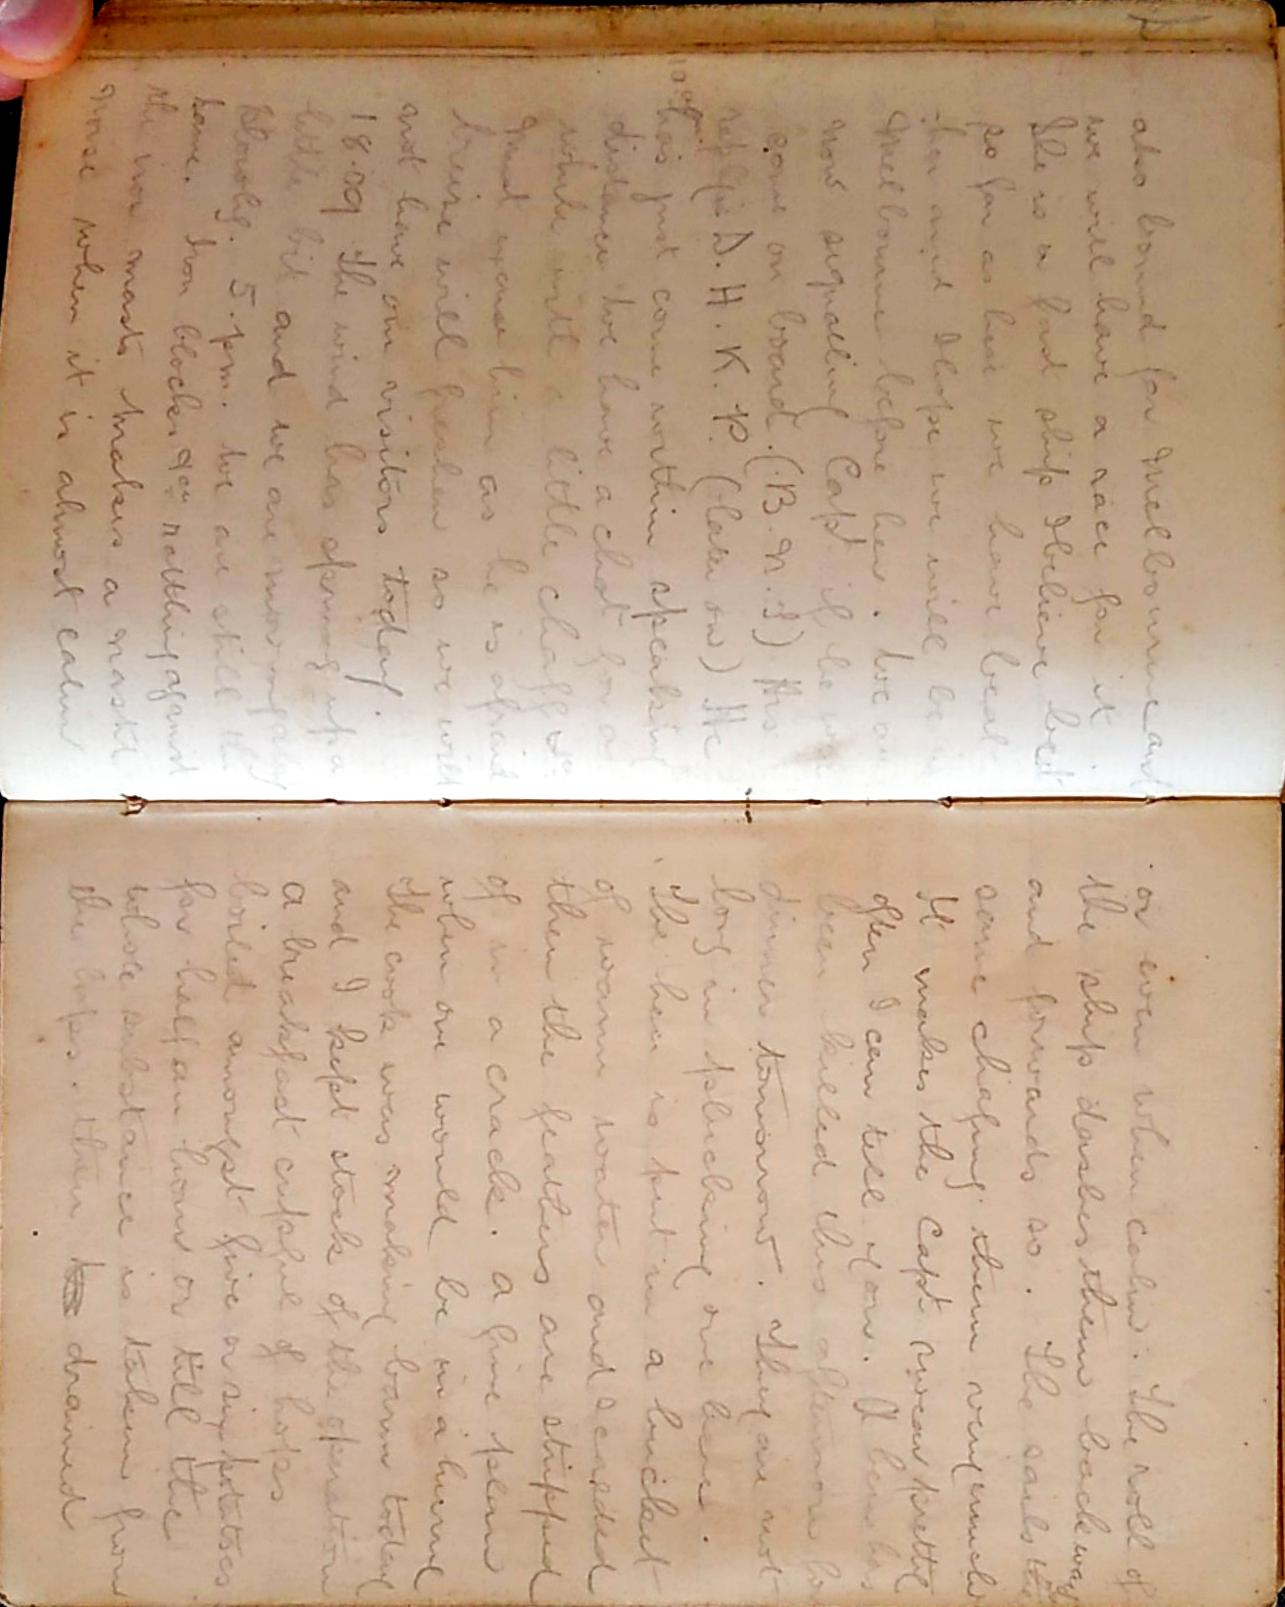 also bound for Melbourne and
we will have a race for it.
She is a fast ship I believe but
so far as here we have beat
her and I hope we will be in
Melbourne before her. We are
now signalling Capt if he will
come on board. (B.N.J) His
reply is D.H.K.P. (later on) He
has just come within speaking
distance we have a chat for a
while with a little chaff &c
must excuse him as he is afraid
breise will freshen so we will
not have our visitors today.
18.09 The wind has sprung up a
little bit and we are moving along
slowly. 5.pm. We are still the
same. Iron blocks &c rattling against
the iron masts makes a nastie
noise when it is almost calm
or even when calm. The roll of
the ship dashes them backward
and forwards so. The sails the
same chafing them very much
It makes the Capt swear prettie
often I can tell you. A hen has
been killed this afternoon for
dinner tomorrow. They are not
long in plucking one here.
The hen is put in a bucket
of warm water and scalded
then the feathers are stripped
of in a crack. A fine plan
when one would be in a hurry
The cook was making barm today
and I kept stock of the operation
a breakfast cupful of hops
boiled amongst five or six potatoes
for half an hour or till the
whole substance is taken from
the hops. then drained